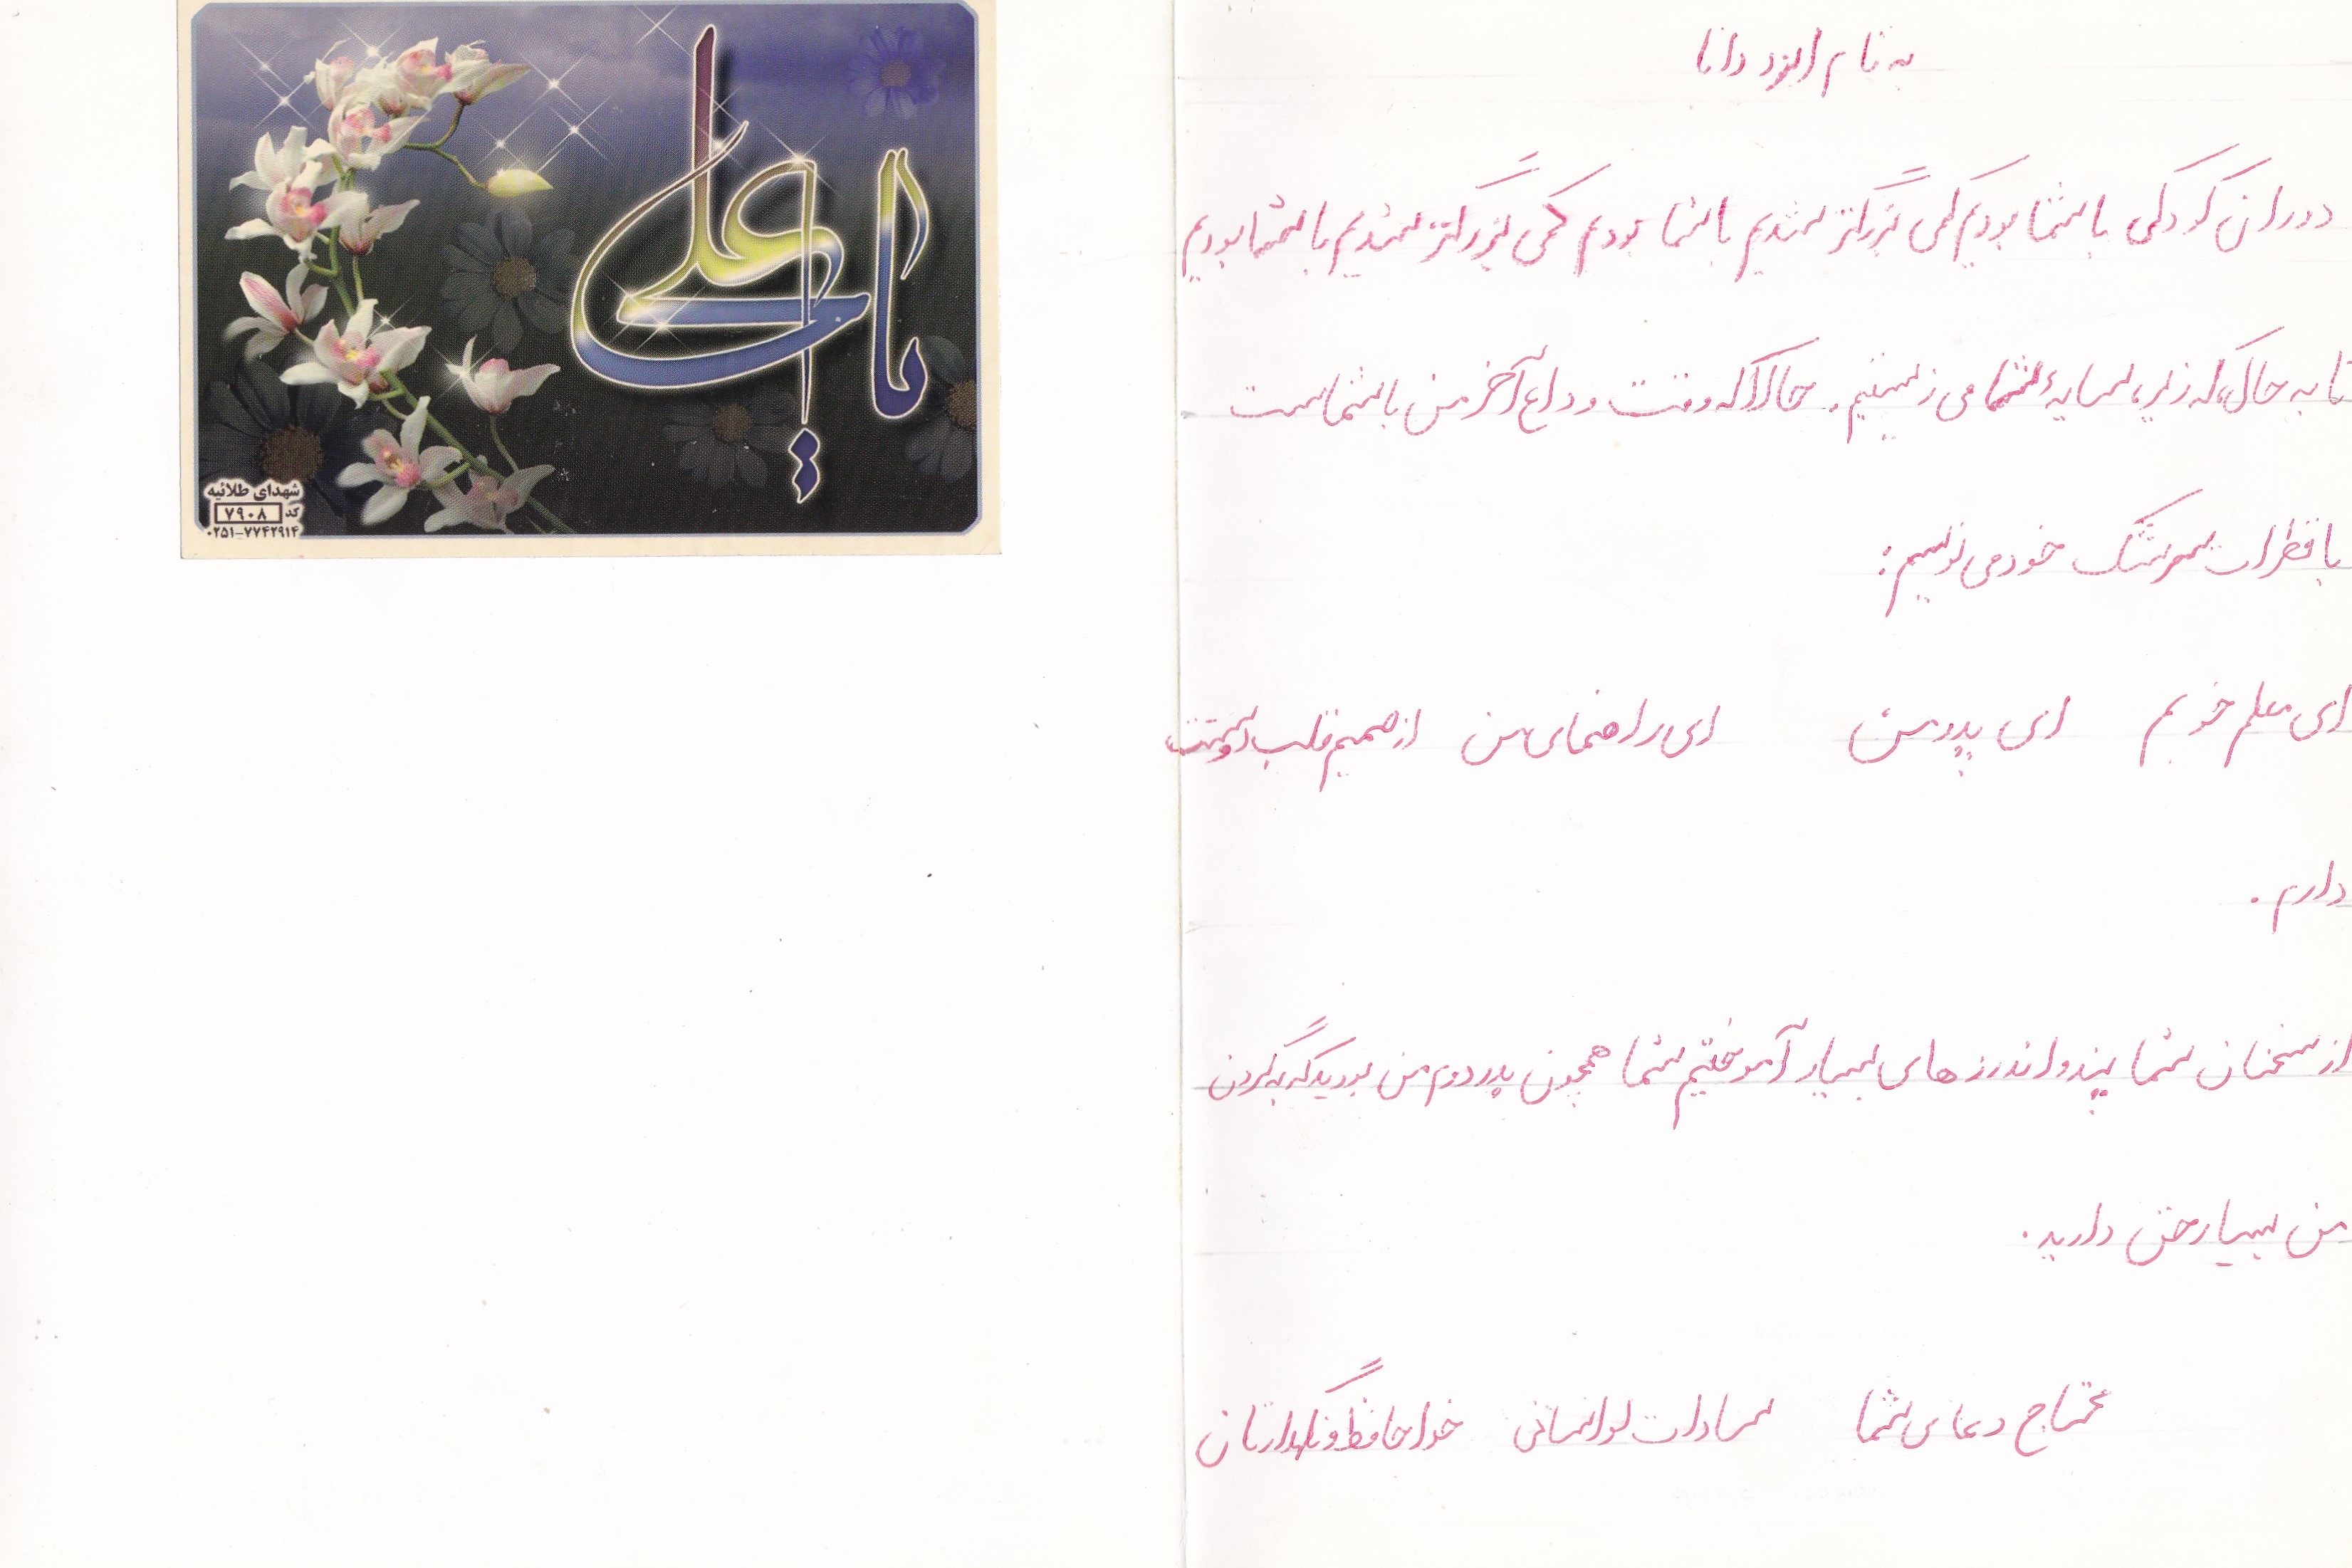 به نام ایزد دانا
دوران کودکی با شما بودیم کمی بزرگتر شدیم با شما بودیم کمی بزرگتر شدیم با شما بودیم
تا به حال که زیر سایه شما می زیستیم. حالا که وقت وداع آخر من با شماست
با قطرات سرشک خود می نویسم:
ای معلم خوبم ای پدر من ای راهنمای من از صمیم قلب دوستت
دارم.
از سخنان شما پند و اندرز های بسیار آموختیم شما همچون پدر دوم من بودید که به گردن
من بسیار حق دارید.
محتاج دعای شما سادات لواسانی خدا حافظ و نگهدارتان
یا علی
شهدای طلائیه
کد ۷۹۰۸
۰۲۵۱-۷۷۴۲۹۱۴